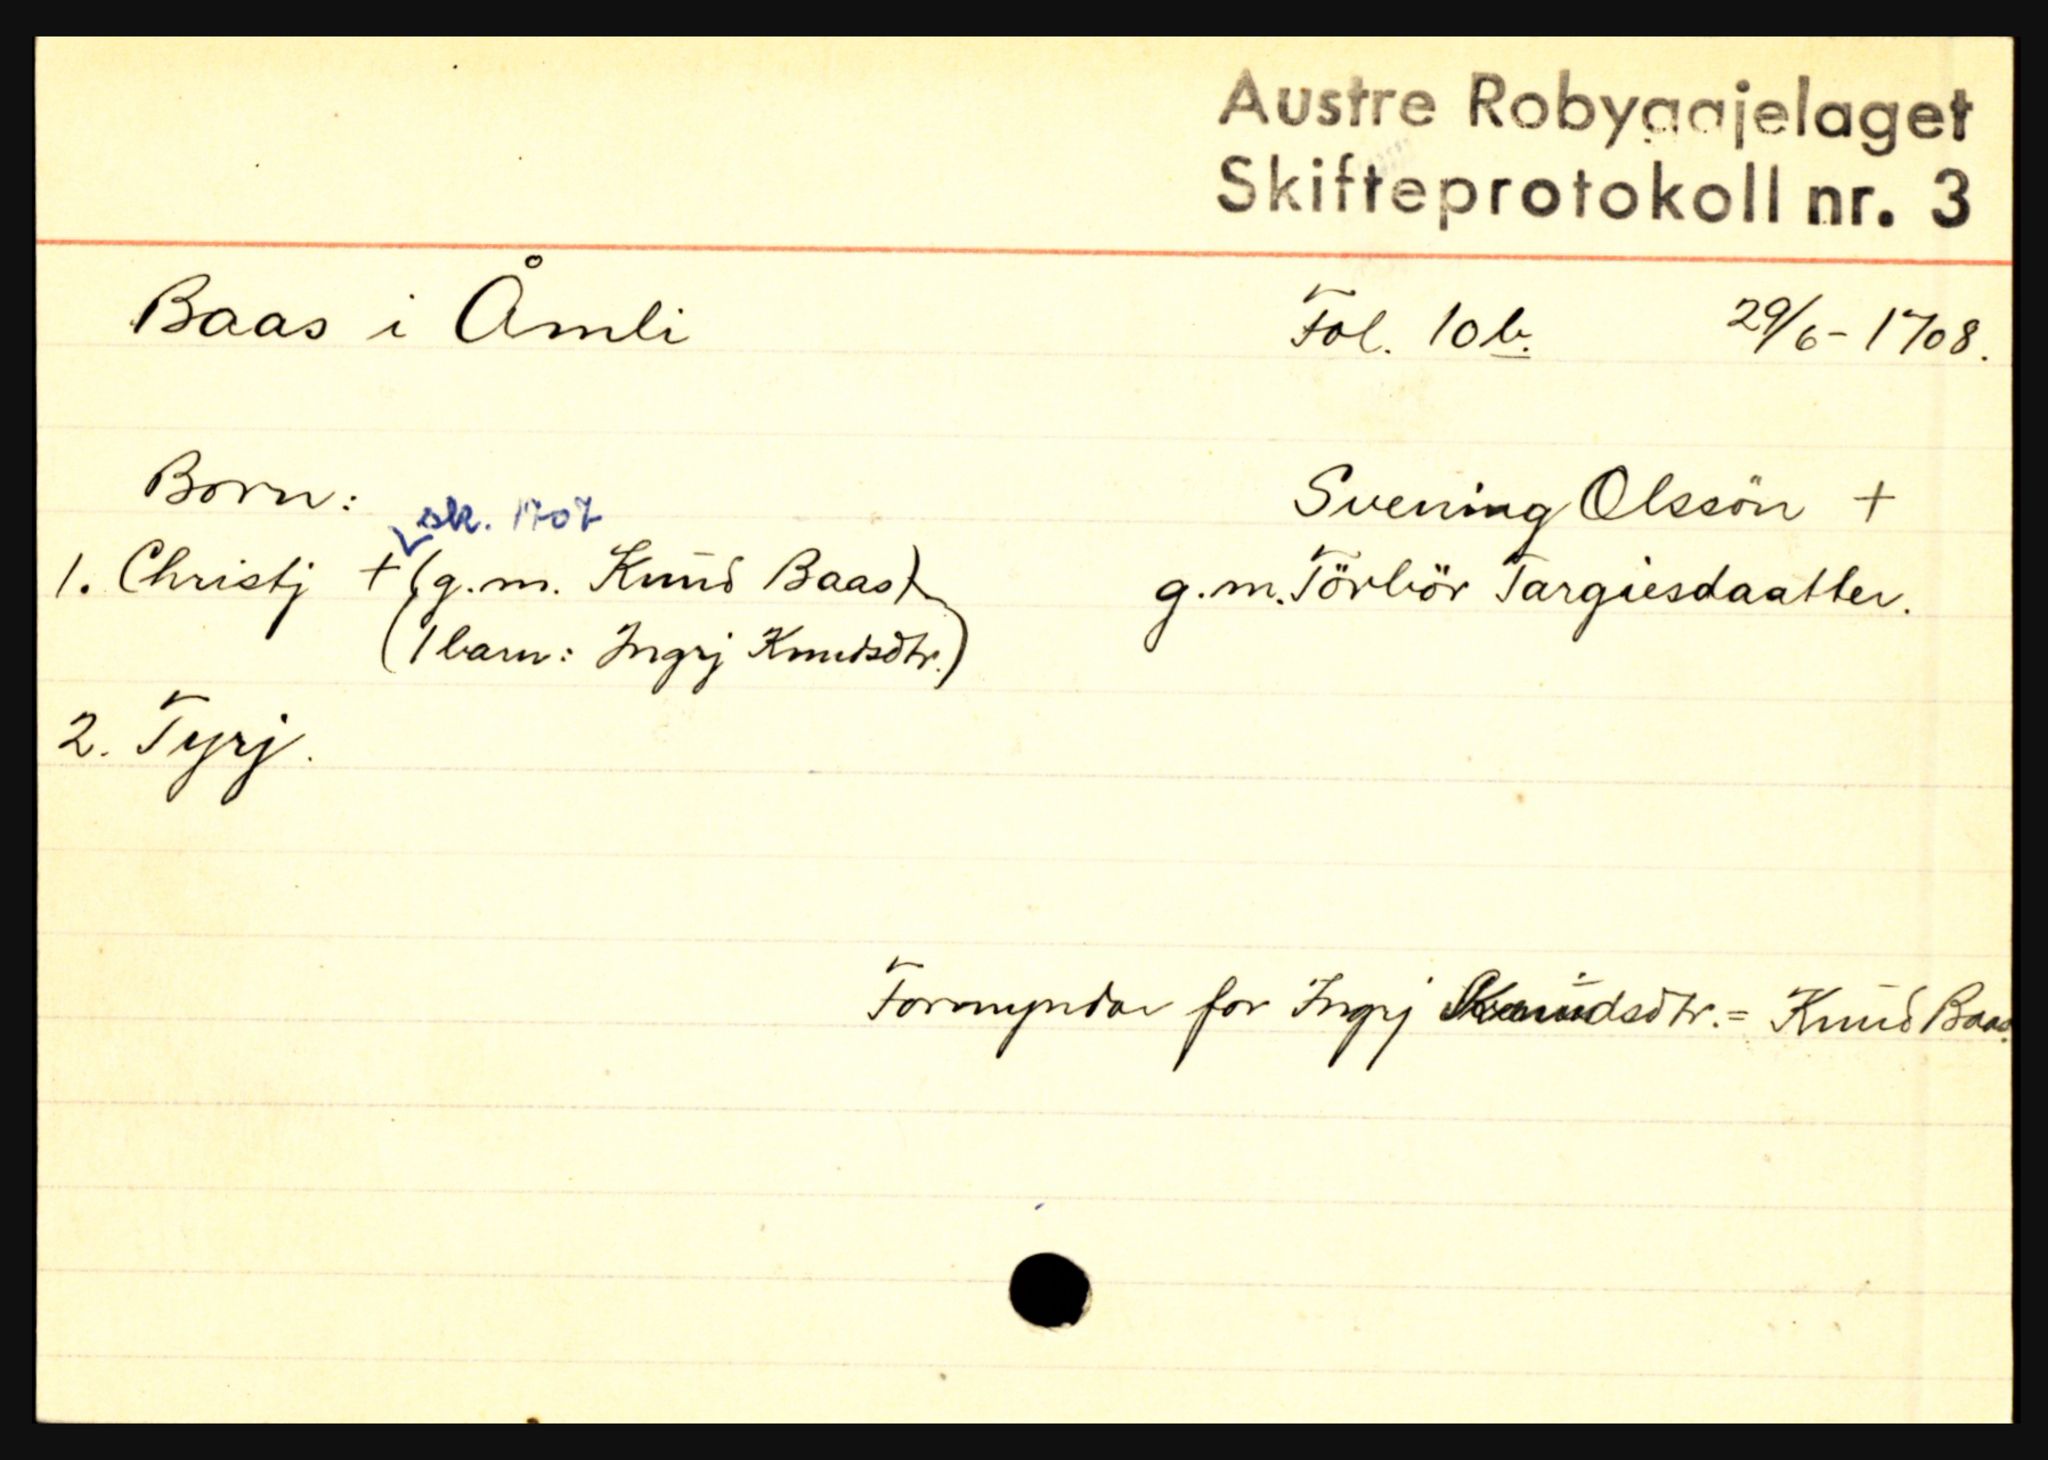 Austre Robyggjelaget
Skifteprotokoll nr. 3
Baas i Åmli Fol. 10b. 29/6-1708.
Born:
sk. 1707
Svening Olssön +
1. Christj + (g.m. Knud Baas)
g.m. Törbör Targiesdaatter.
(1 barn: Ingrj Knudsdtr.)
2. Tyrj.
Formyndar for Ingrj Knudsdtr. = Knud Baas.